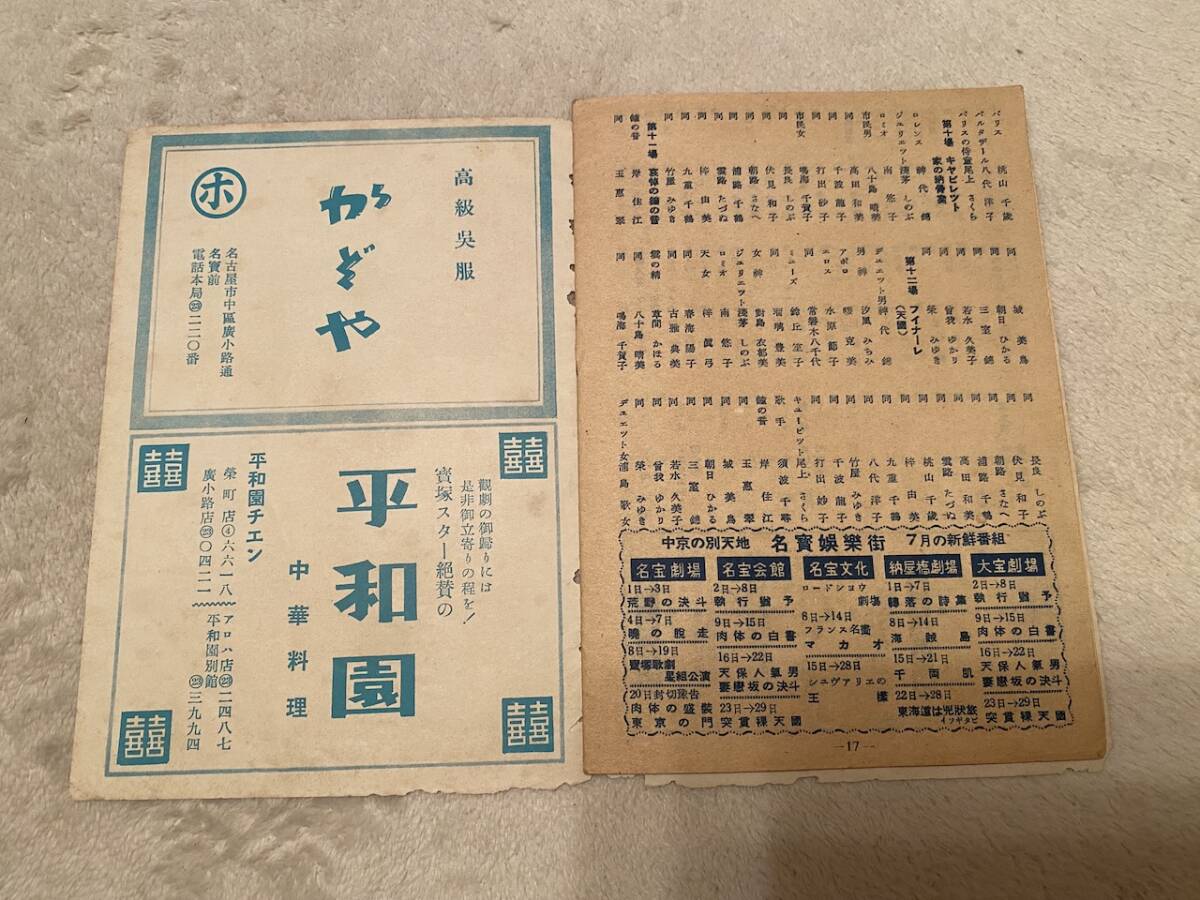 高級吳服
かぞや
ホ
名古屋市中區廣小路通
名寶前
電話本局㉓二二〇番
觀劇の御歸りには
是非御立寄りの程を!
寶塚スター絕賛の
平和園
中華料理
平和園チエン
榮町店④六六一八
廣小路店㉓〇四二一
アロハ店㉓二四八七
平和園別館㉓三九九四
パリス 桃山千歳
バルタザール 八代洋子
パリスの侍童 尾上さくら
第十場 キヤピレツト家の納骨堂
ロレンス 神代錦
ジユリエツト 淺茅しのぶ
ロミオ 南悠子
市民男 八十島晴美
同 高田和美
同 千波龍子
同 打出砂子
市民女 鳴海千賀子
同 長良しのぶ
同 伏見和子
同 朝路さなへ
同 浦路千鶴
同 雲路たづぬ
同 梓由美
同 九重千鶴
同 竹屋みゆき
第十一場 哀悼の鐘の音
鐘の音 岸住江
同 玉惠翠
同 城美鳥
同 朝日ひかる
同 三室錦
同 若水久美子
同 曾我ゆかり
同 榮みゆき
第十二場 フイナーレ
(天國)
デユエツト男 神代錦
男神 汐風みちみ
アポロ 曙克美
エロス 水原節子
同 常磐木八千代
ミューズ 鈴丘宝子
同 瑠璃豊美
女神 對島衣都美
ジユリエツト 淺茅しのぶ
ロミオ 南悠子
天女 梓眞弓
同 春海陽子
同 古雅典美
雲の精 草間かほる
同 八十島晴美
同 鳴海千賀子
同 長良しのぶ
同 伏見和子
同 朝路さなへ
同 浦路千鶴
同 高田和美
同 雲路たづぬ
同 桃山千歳
同 梓由美
同 九重千鶴
同 八代洋子
同 竹屋みゆき
同 千波龍子
同 打出妙子
キユーピツト 尾上さくら
歌手 須波千尋
鐘の音 岸住江
同 玉惠翠
同 城美鳥
同 朝日ひかる
同 三室錦
同 若水久美子
同 曾我ゆかり
同 榮みゆき
デユエツト女 浦島歌女
中京の別天地 名寳娯樂街 7月の新鮮番組
名宝劇場
1日→3日
荒野の決斗
4日→7日
曉の脫走
8日→19日
寶塚歌劇
星組公演
20日封切豫告
肉体の盛裝
東京の門
名宝会館
2日→8日
執行猶予
9日→15日
肉体の白書
16日→22日
天保人氣男
妻戀坂の決斗
23日→29日
突貫裸天國
名宝文化
ロードショウ
劇場
8日→14日
フランス名畫
マカオ
15日→28日
シユヴァリエの
王様
納屋橋劇場
1日→7日
轉落の詩集
8日→14日
海賊島
15日→21日
千両凱
22日→28日
東海道は兇狀旅
イフギタビ
大宝劇場
2日→8日
執行猶予
9日→15日
肉体の白書
16日→22日
天保人氣男
妻戀坂の決斗
23日→29日
突貫裸天國
—17—